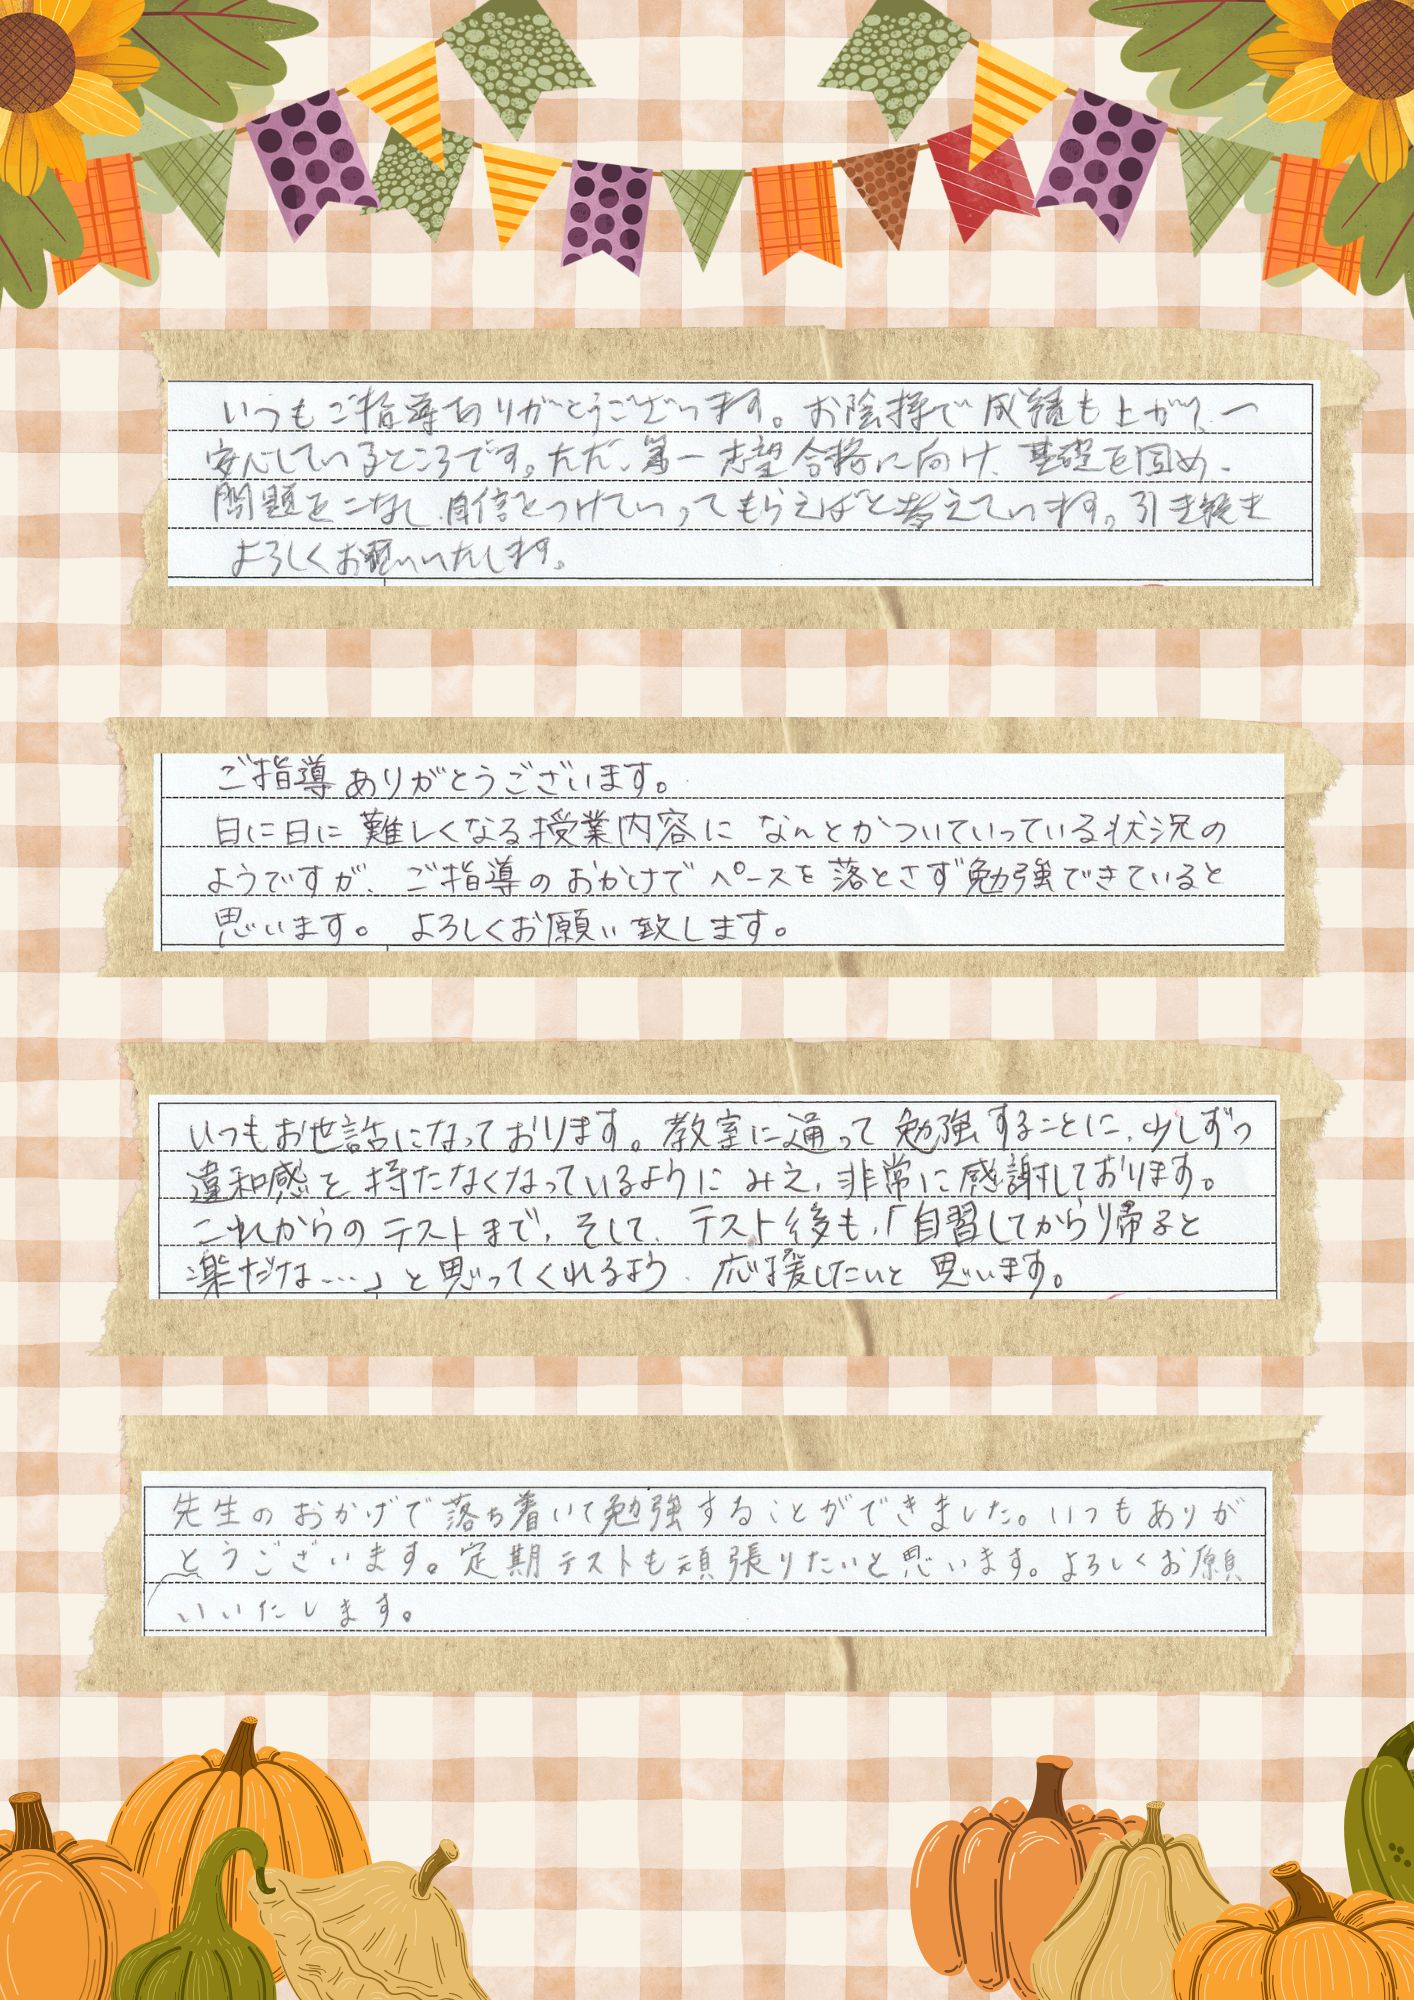 いつもご指導ありがとうございます。お陰様で成績も上がり、一
安心しているところです。ただ、第一志望合格に向け、基礎を固め、
問題をこなし、自信をつけていってもらえばと考えています。引き続き
よろしくお願いいたします。
ご指導ありがとうございます。
日に日に難しくなる授業内容になんとかついていっている状況の
ようですが、ご指導のおかげでペースを落とさず勉強できていると
思います。よろしくお願い致します。
いつもお世話になっております。教室に通って勉強することに、少しずつ
違和感を持たなくなっているようにみえ、非常に感謝しております。
これからのテストまで、そして、テスト後も、「自習してから帰ると
楽だな…」と思ってくれるよう、応援したいと思います。
先生のおかげで落ち着いて勉強することができました。いつもありが
とうございます。定期テストも頑張りたいと思います。よろしくお願
いいたします。